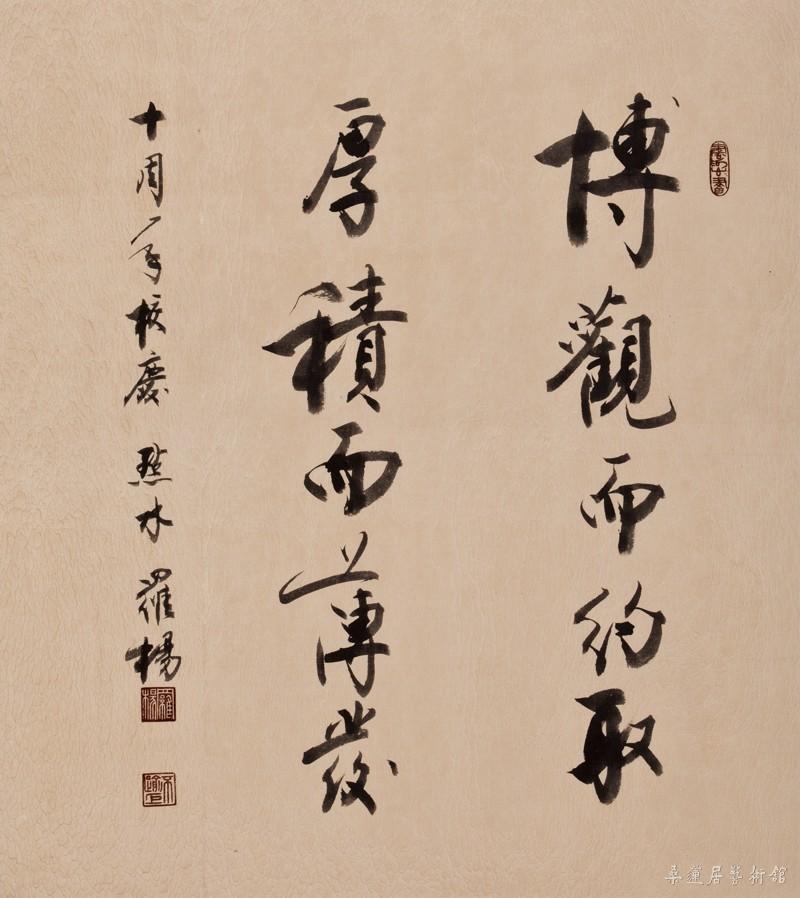 博觀而約取
厚積而薄發
十周年校慶 點水 羅楊
羅楊
桑蓮居藝術館